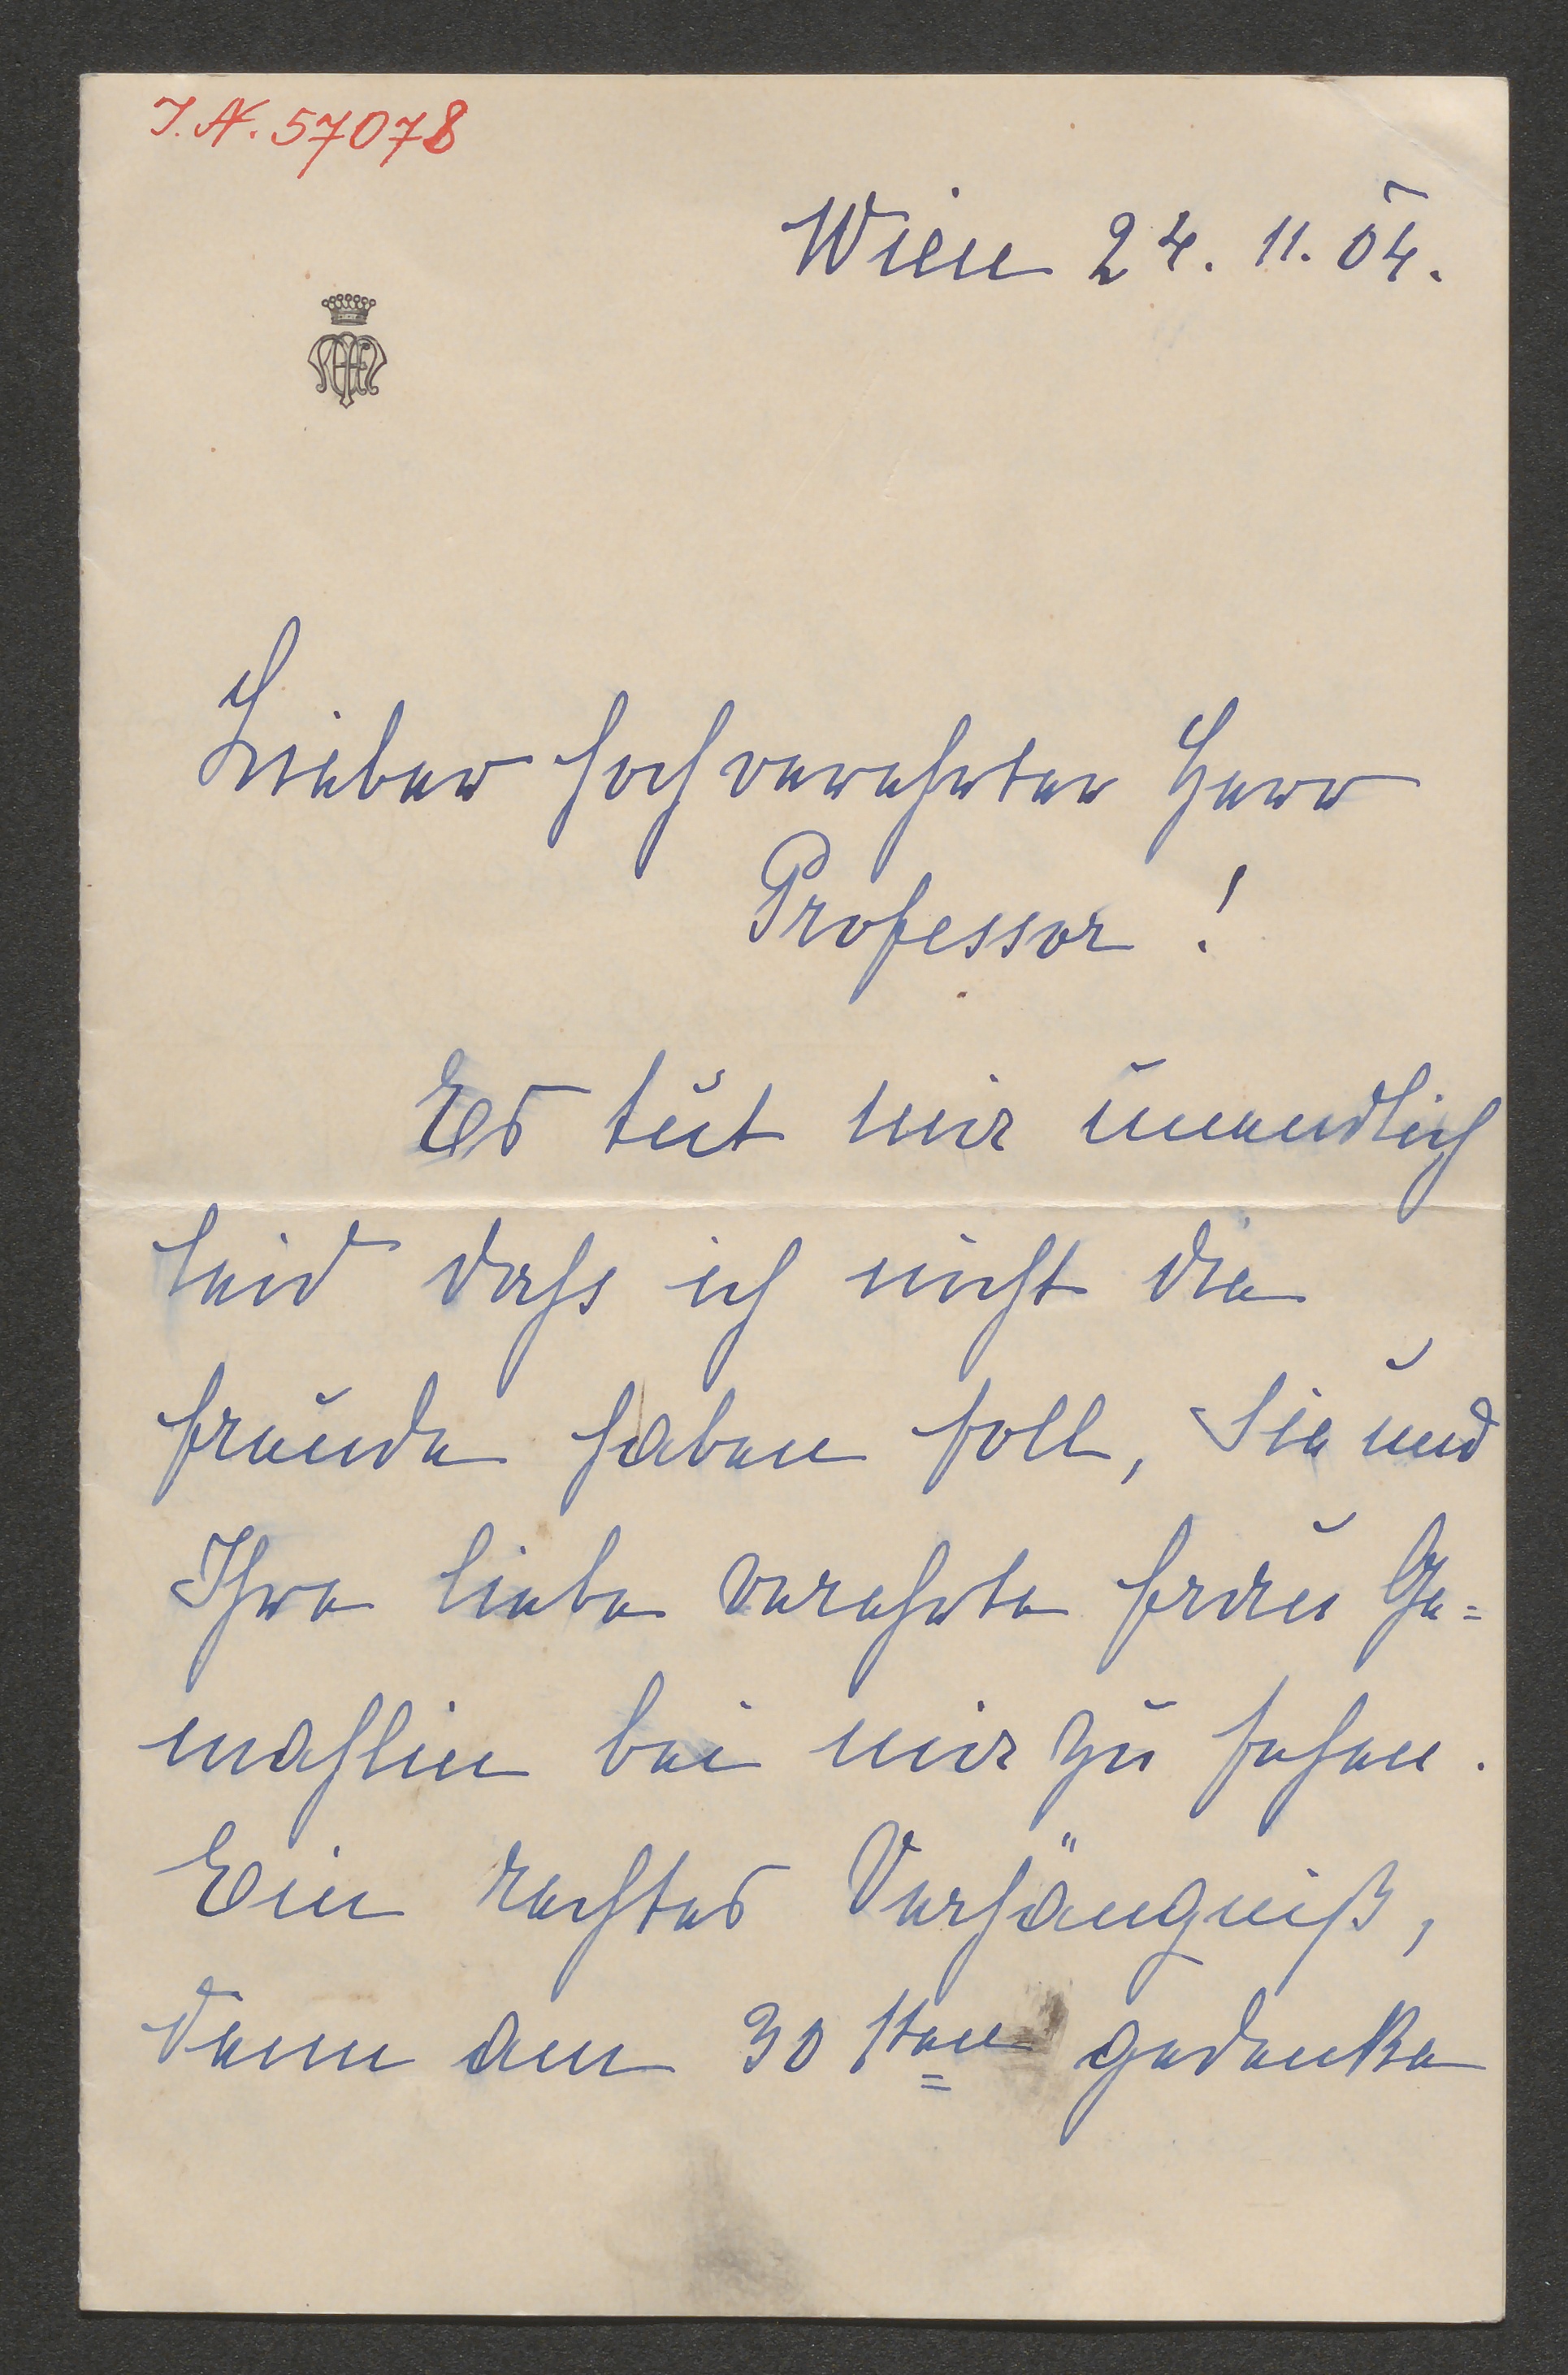 I. N. 57078
Wien 24. 11. 04.
Lieber hochverehrter Herr
Professor !
Es tut mir unendlich
leid dass ich nicht die
Freude haben soll, Sie und
Ihre liebe verehrte Frau Ge=
mahlin bei mir zu sehen.
Ein rechtes Verhängniß,
denn am 30sten gedenke